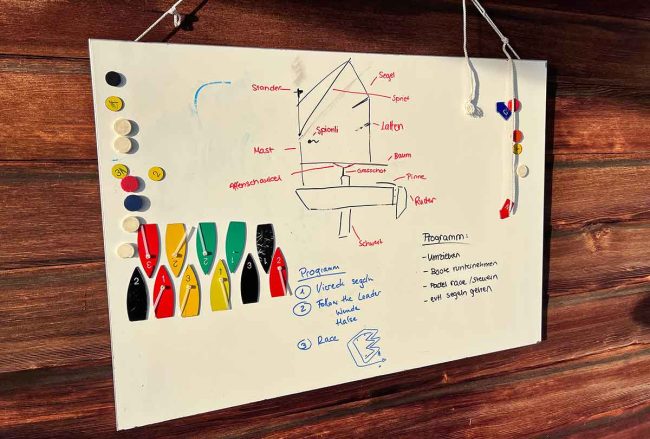 Stander
Segel
Spriet
Spionli
Latten
Mast
Baum
Affenschaukel
Grossschot
Pinne
Ruder
Schwert
Programm
1 Viereck segeln
2 Follow the Leader
Wende
Halse
3 Race
Programm:
- Umziehen
- Boote runternehmen
- Padel race / steuern
- evtl segeln gehen